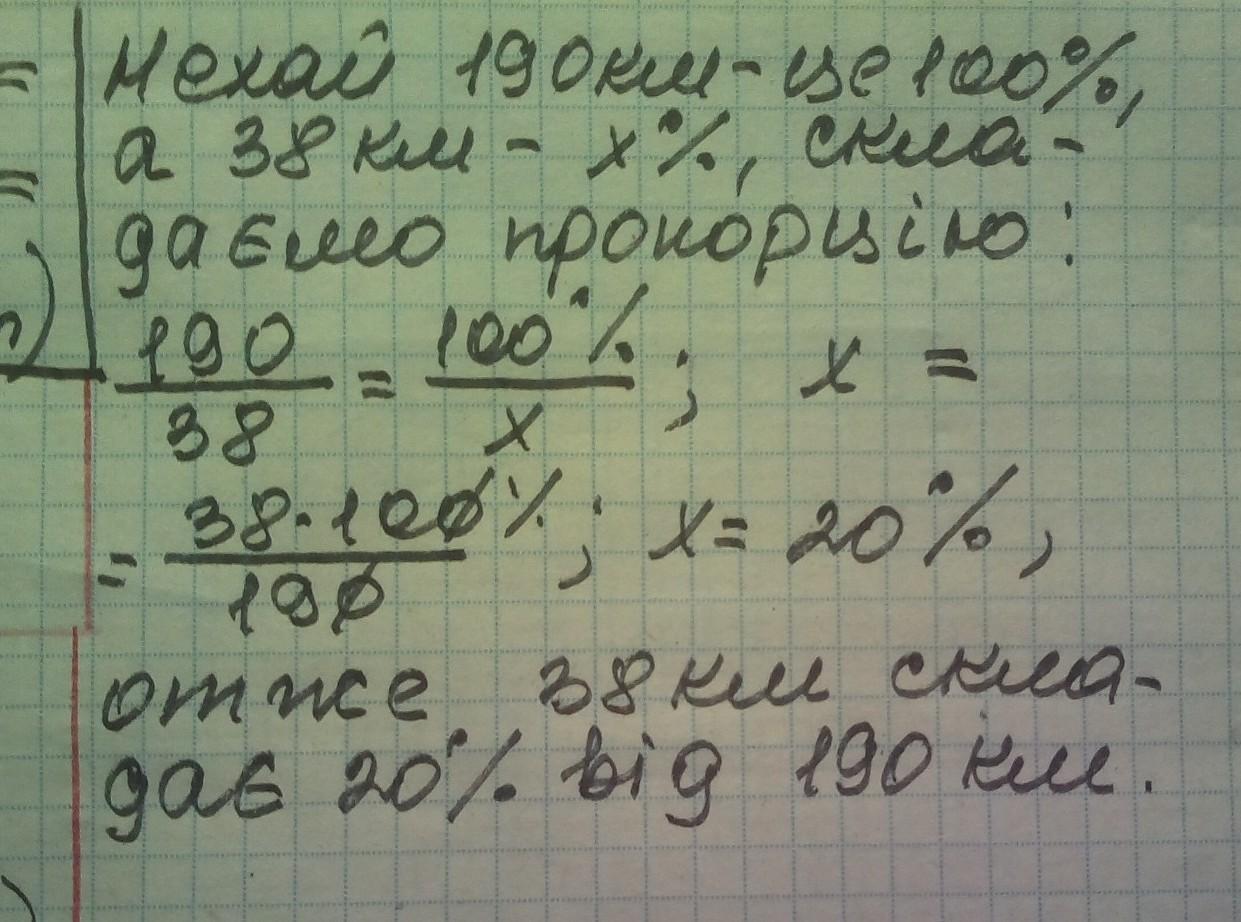 Нехай 190км-це 100%,
а 38 км - x%, скла-
даємо пропорцію:
190/38 = 100%/x; x =
= 38·100%/190; x = 20%,
отже 38 км скла-
дає 20% від 190 км.